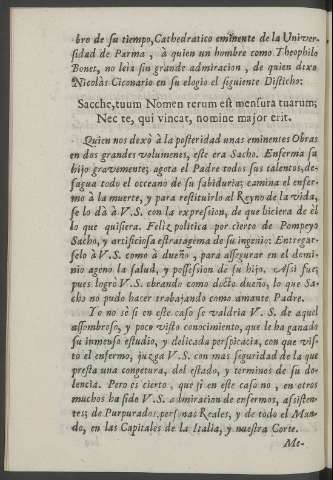 bre de su tiempo, Cathedratico eminente de la Univer-
sidad de Parma, à quien un hombre como Theophilo
Bonet, no leia sin grande admiracion, de quien dexo
Nicolàs Ciconario en su elogio el siguiente Disticho:
Sacche, tuum Nomen rerum est mensura tuarum;
Nec te, qui vincat, nomine major erit.
Quien nos dexò à la posteridad unas eminentes Obras
en dos grandes volumenes, este era Sacho. Enferma su
hijo gravemente; agota el Padre todos sus talentos, de-
sagua todo el occeano de su sabiduria; camina el enfer-
mo à la muerte, y para restituirlo al Reyno de la vida,
se lo dà à V.S. con la expresion, de que hiciera de èl
lo que quisiera. Feliz politica por cierto de Pompeyo
Sacho, y artificiosa estratagema de su ingenio: Entregar-
selo à V.S. como à dueño, para assegurar en el domi-
nio ageno la salud, y possession de su hijo. Assi fue;
pues logrò V.S. obrando como docto dueño, lo que Sa-
cho no pudo hacer trabajando como amante Padre.
Yo no sè si en este caso se valdria V.S. de aquel
assombroso, y poco visto conocimiento, que le ha ganado
su inmenso estudio, y delicada perspicacia, con que vis-
to el enfermo, juzga V.S. con mas seguridad de la que
presta una congetura, del estado, y terminos de su do-
lencia. Pero es cierto, que si en este caso no, en otros
muchos ha sido V.S. admiracion de enfermos, assisten-
tes; de Purpurados, personas Reales, y de todo el Mun-
do, en las Capitales de la Italia, y nuestra Corte.
Me-